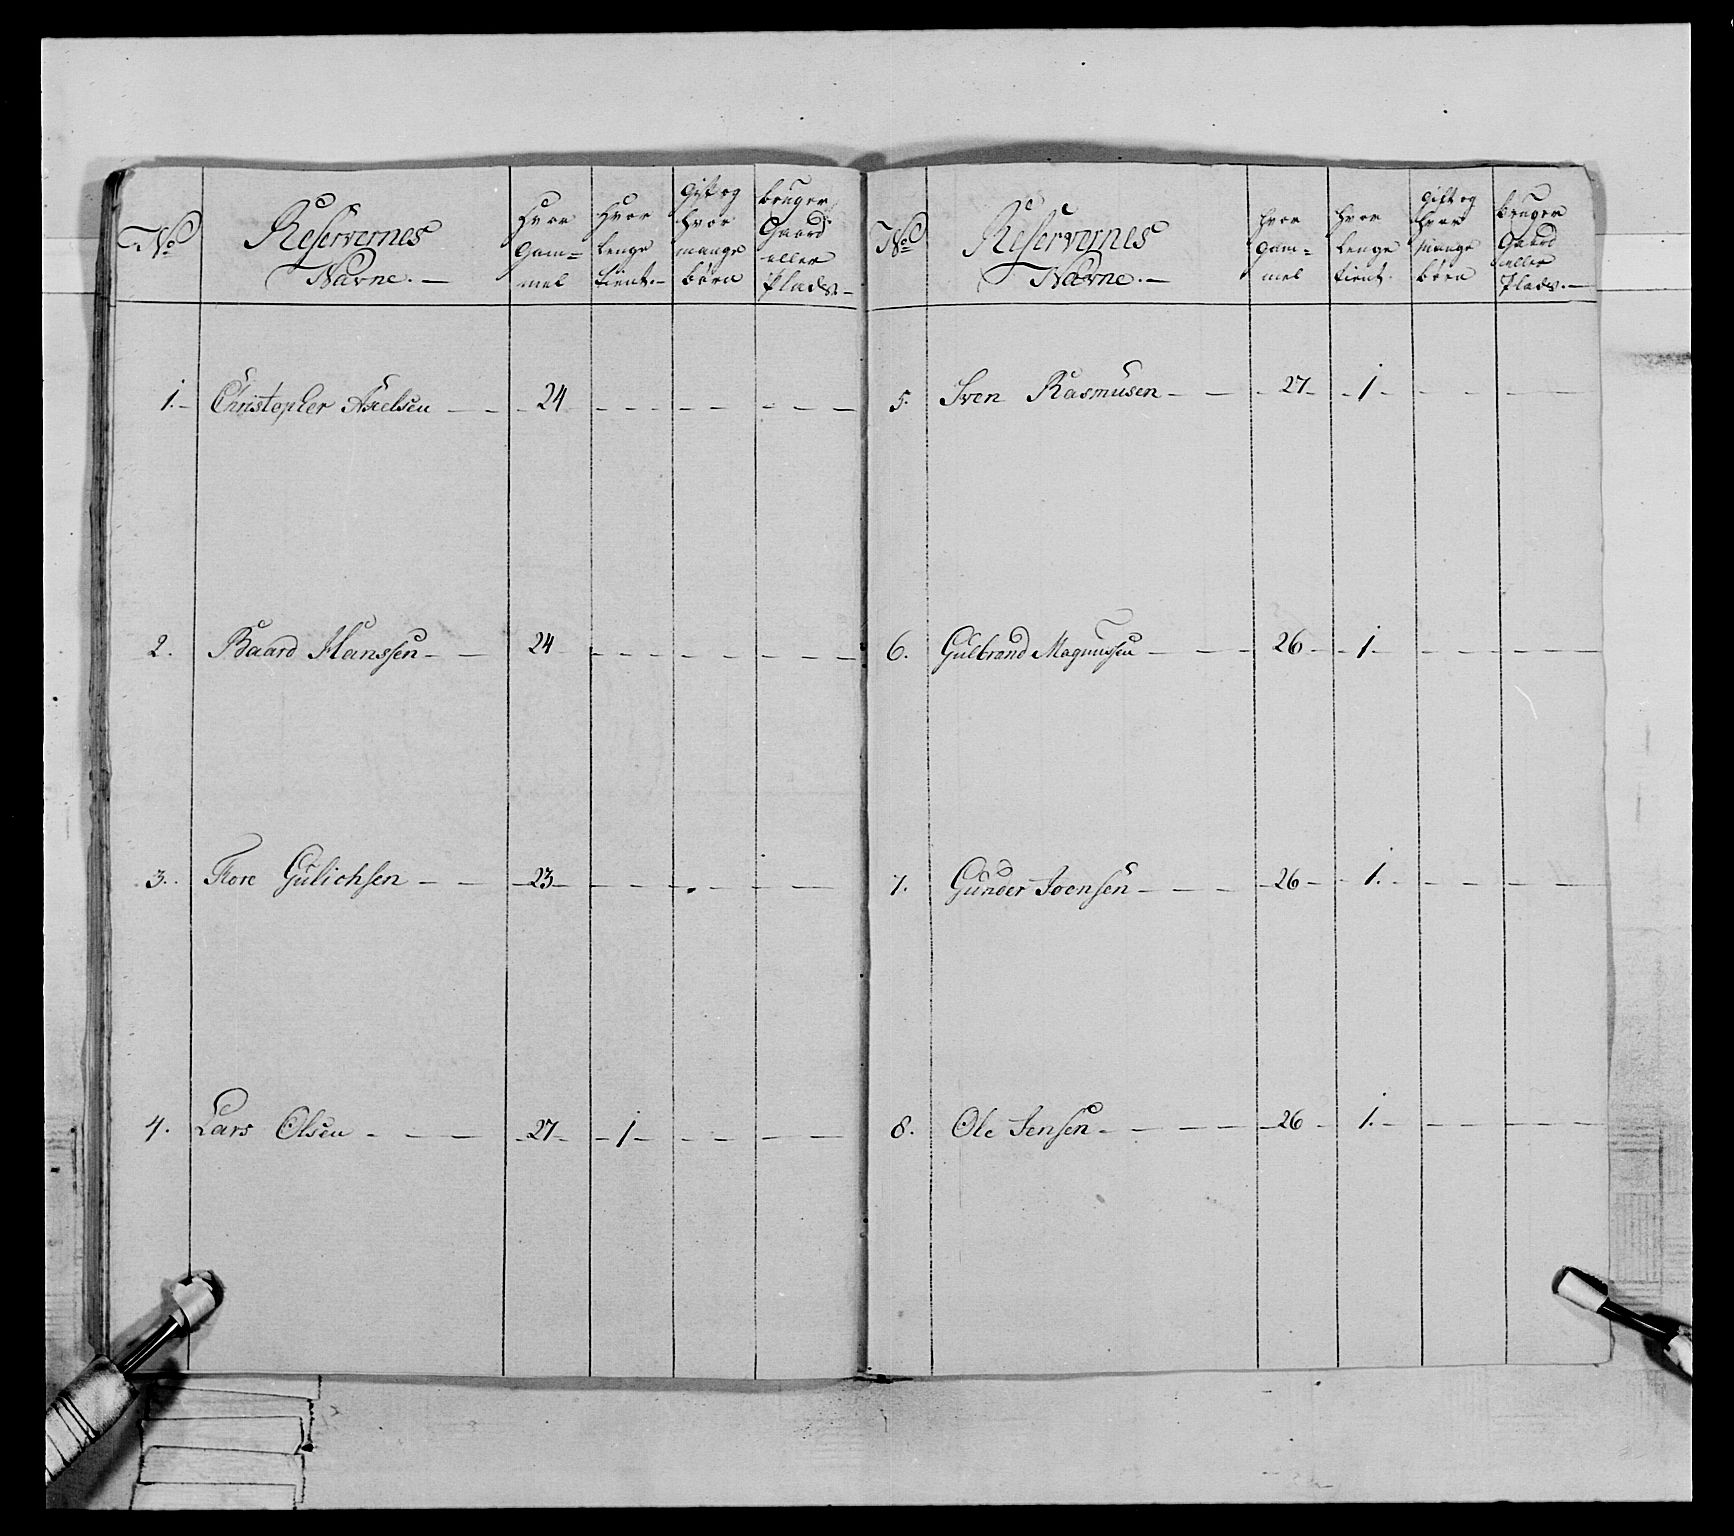 No
Reservernes
Navne. —
Hvor
Gam=
mel
Hvor
lenge
tient. —
Gift og
hvor
mange
børn
bruger
Gaard
eller
Plads. —
1. Christopher Axelsen — — 24 — — — — — — —
2. Baard Hanssen — — 24 — — — — — — —
3. Tore Gulichsen — — 23 — — — — — — —
4. Lars Olsen — — — 27 — 1 — — — — —
No
Reservernes
Navne. —
Hvor
Gam=
mel
Hvor
lenge
tient.
Gift og
hvor
mange
børn
bruger
Gaard
eller
Plads. —
5. Sven Rasmusen — — — 27 — 1 — — — — —
6. Gulbrand Magnussen — — — 26 — 1. — — — — —
7. Gunder Joensen — — — 26 — 1. — — — — —
8. Ole Jensen — — — — 26 — 1. — — — — —